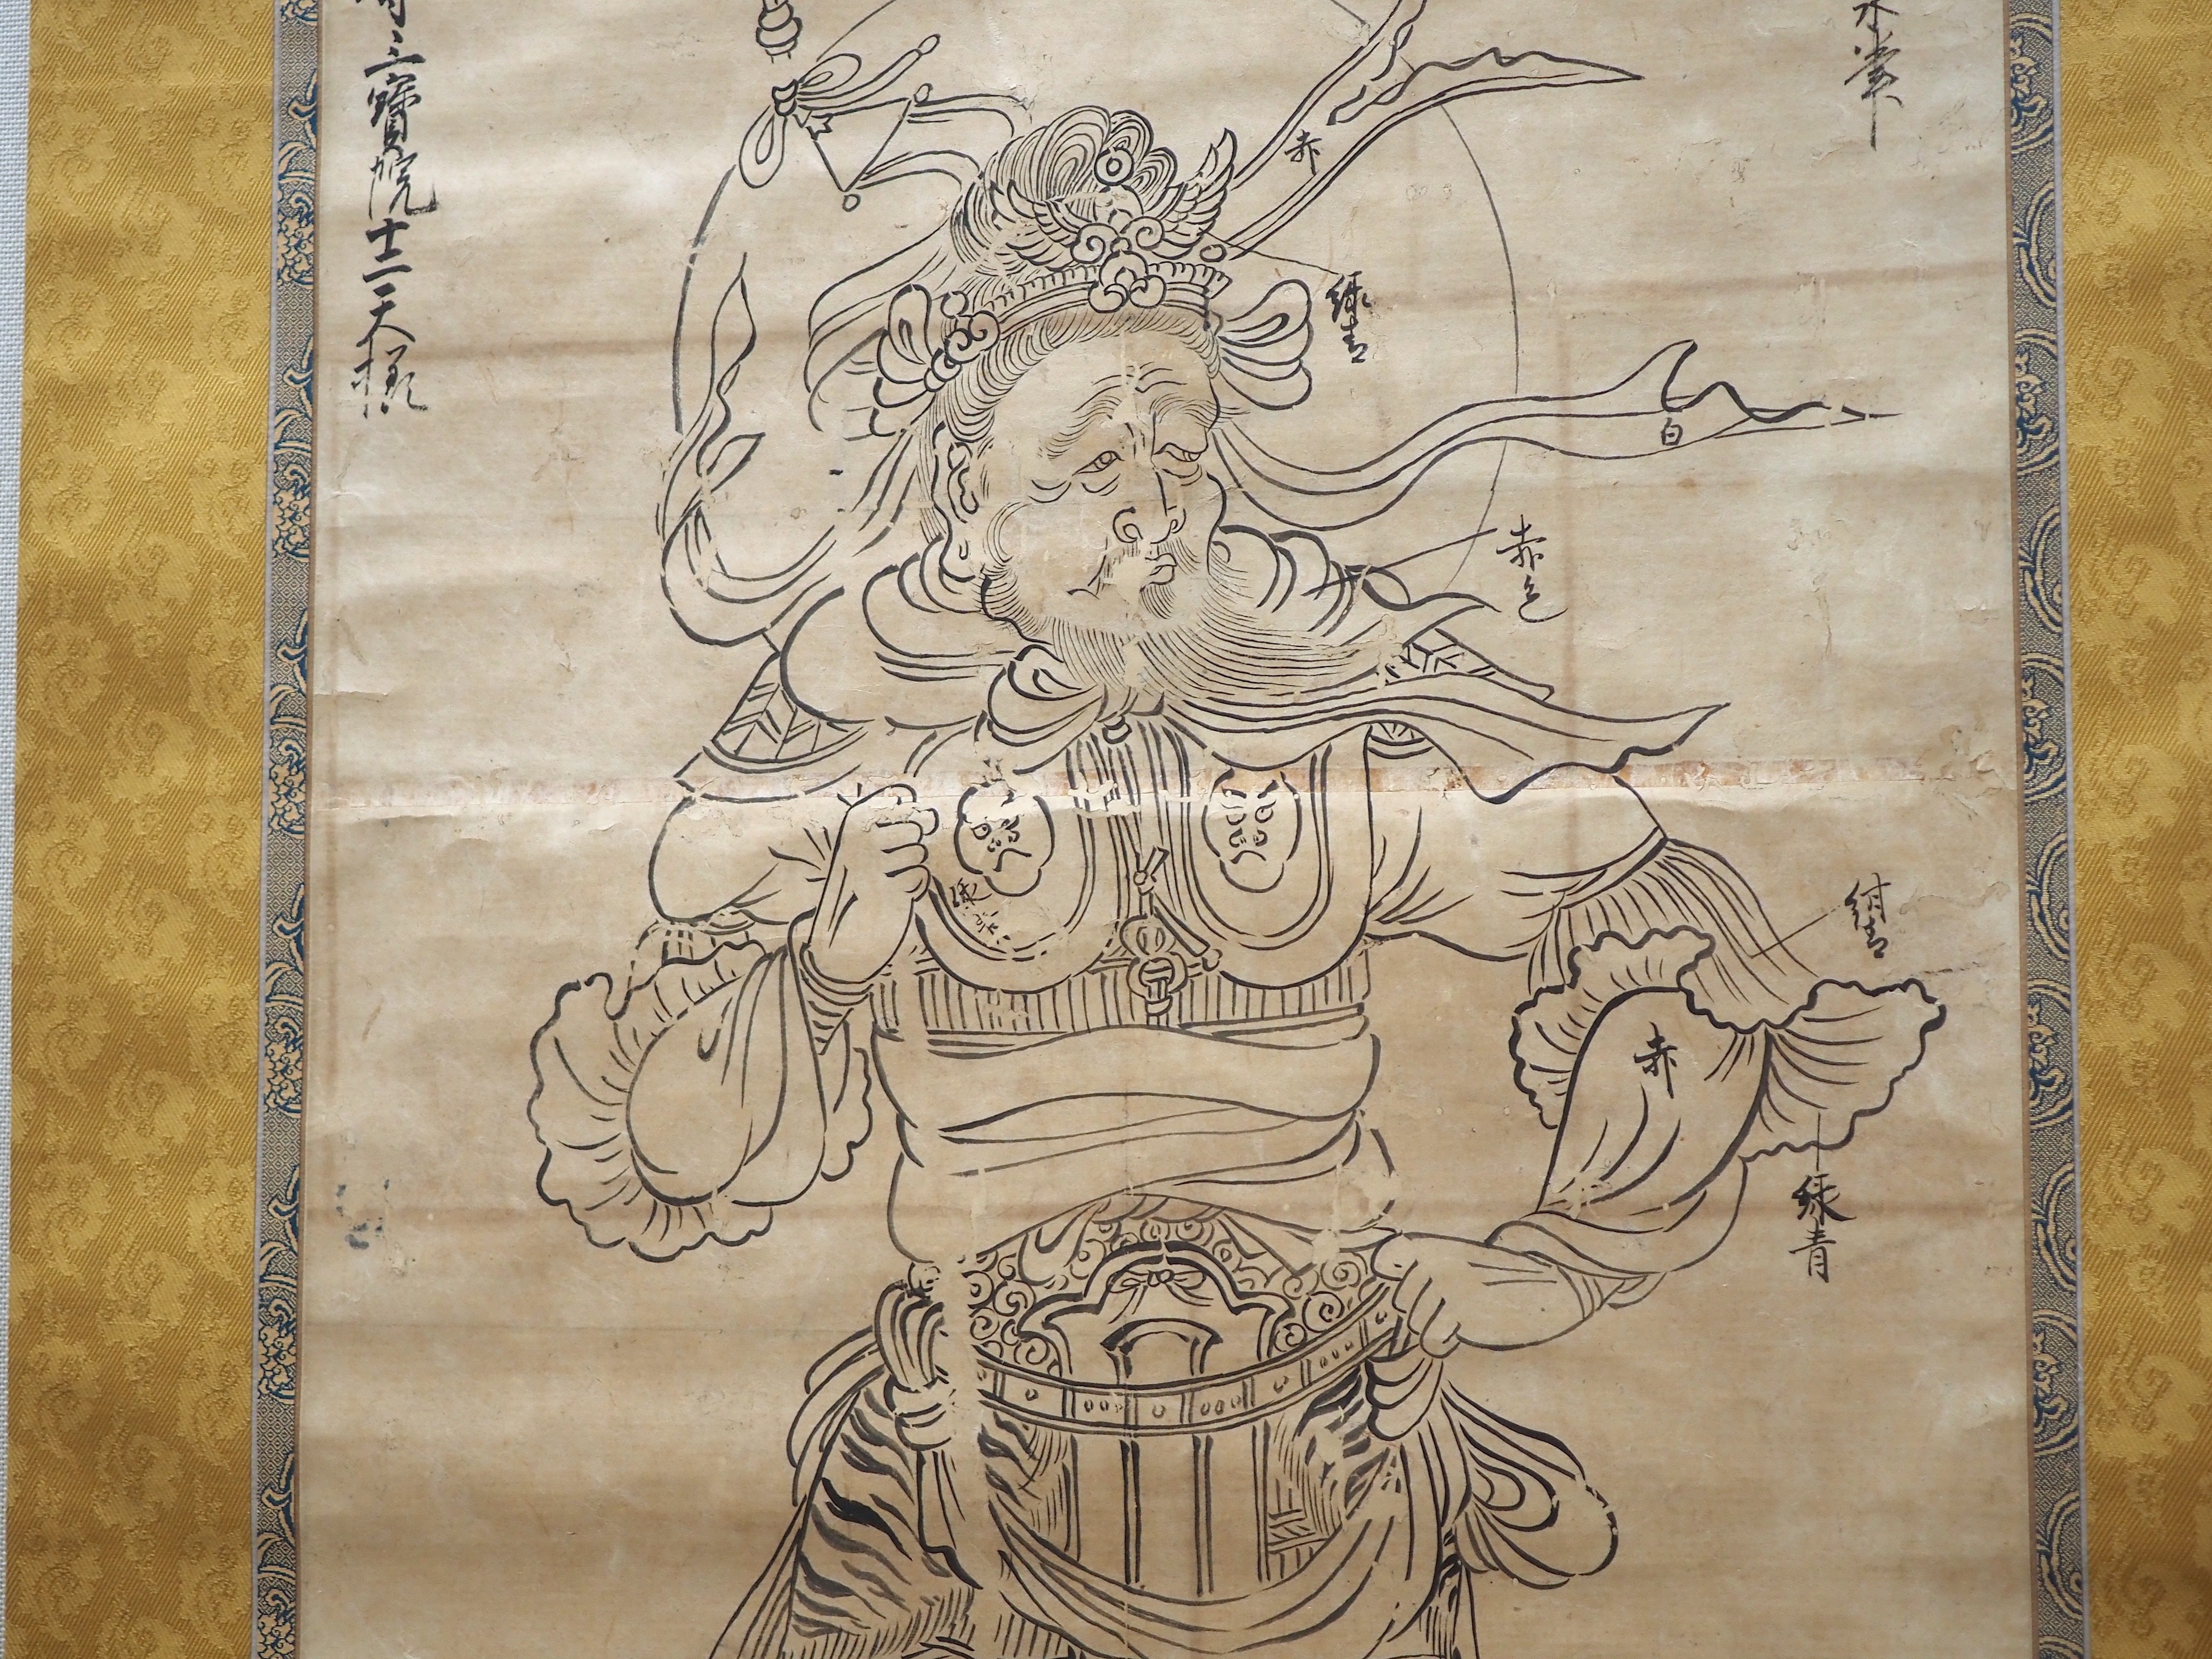 三寳院十二天様
赤
緑青
白
赤色
紺青
赤
緑青